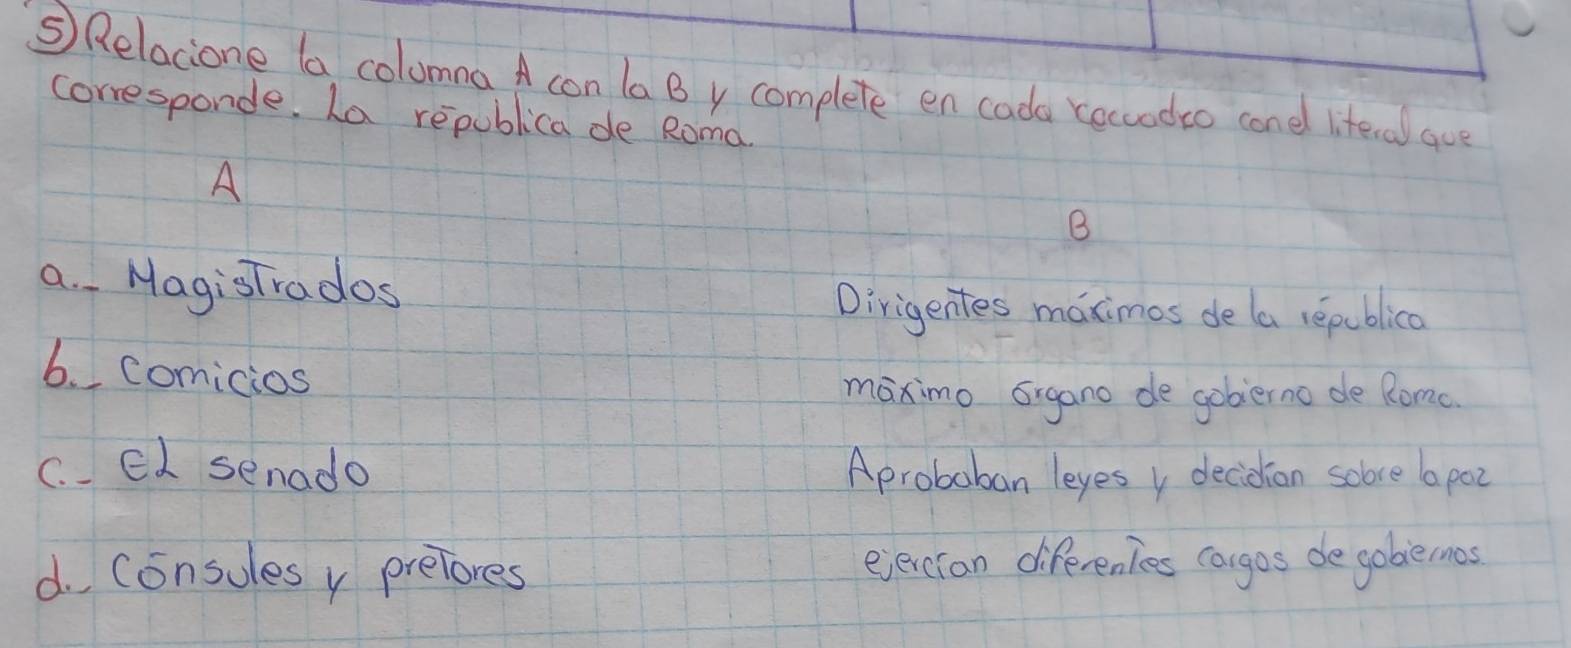 5) Relacione la columna A con la B y complete en cada recuadro con el literal que
corresponde. La répública de Roma.
A
B
a.- Magistrados
Dirigentes máximos de la république
b.- comicios
máximo órgano de gobierno de Roma.
c.- El senado
Aprobaban leyes y decidían sobre la paz
d.- Cónsules y pretores
ejercían diferentes cargos de gobiernos.